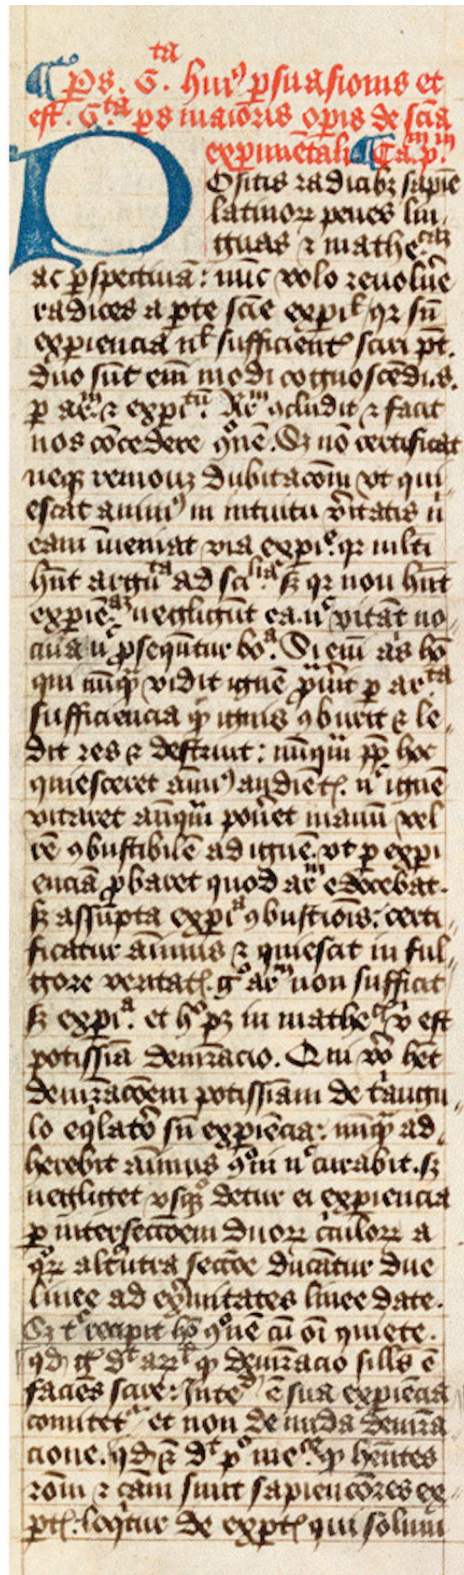 ¶ Ps. 6.ta huiꝰ ꝑsuasionis et
est .6.ta ps maioris oꝑis de sciā
exꝑimētali ¶ Ca.m p.m
Positis radicibꝫ sapiē
latinoꝝ penes lin
guas ⁊ mathe.caꝫ
ac ꝑspectiuā: nūc volo reuolūe
radices a ꝑte scīe exꝑil qꝛ sn̄
exꝑiencia nl sufficient̉ sciri pt̄.
duo sūt enī modi cognoscēdi .s.
ꝑ arm̄. ⁊ exꝑitū. Arm ꝯcludit ⁊ facit
nos cōcedere qōnē. Sꝫ nō certificat
neqꝫ remouꝫ dubitacōm vt qui
escat animꝰ in intuitu v̄itatis n̄
eam īueniat via exꝑi.e qꝛ mlti
hn̄t arguta ad sci.lia sꝫ qꝛ non hn̄t
exꝑiē.aꝫ negligūt ea. nc vitāt no
ciua nc ꝓsequn̄tur boa. Si enī aīs hō
qui nūqꝫ vidit ignē ꝓuit ꝑ ar.ta
sufficiencia ꝙ ignis ꝯburit ⁊ le
dit res ⁊ destruit: nūquā ꝓp̄ hoc
quiesceret aīmꝰ audiēt̉. nc ignē
vitaret anquā poūet manū vel
rē ꝯbustibilē ad ignē vt ꝑ exꝑi
enciā ꝓbaret quod arm edocebat.
sꝫ assūpta exꝑia ꝯbustiōis: certi
ficatur aīmus ⁊ quiescit in ful
gore veritat̉. go arm non sufficit
sꝫ exꝑia. et hc pꝫ in mathe.cis vͥ est
potissīa demr̄acio. Qui vo hēt
demr̄acōem potissīam de tͥangu
lo eqͥlat̄o sn̄ exꝑiēcia: nūqꝫ ad
herebit aīmus ꝯoni nc curabit. sꝫ
negliget vsqꝫ detur ei exꝑiencia
ꝑ intersecc̄oem duoꝝ cͥculoꝝ a
qoꝝ altͥutra secc̄oe ducātur due
linee ad ext̄mitates linee date.
Sꝫ tc recipit hō qōnē cū oī quiete.
qd g̊ dt arl ꝙ demr̄acio sills ē
faciēs scire: Inte.r ē sua exꝑiēcia
comitet̉ et non de nuda demr̄a
cione. qd ⁊ dt po me.ce ꝙ hēntes
rōm ⁊ cām sunt sapiencōres ex
ꝑt̉. loqͥtur de exꝑt̉ qui solum